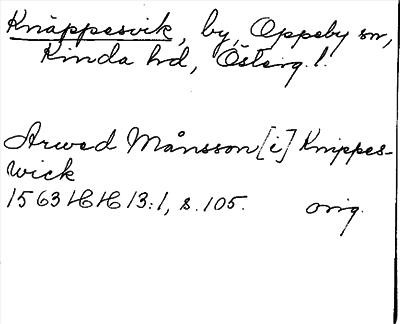 Knäppesvik, by, Oppeby sn,
Kinda hd, Österg.l.
Arwed Månsson [i] Knippes-
wick
1563 HH 13:1, s. 105. orig.